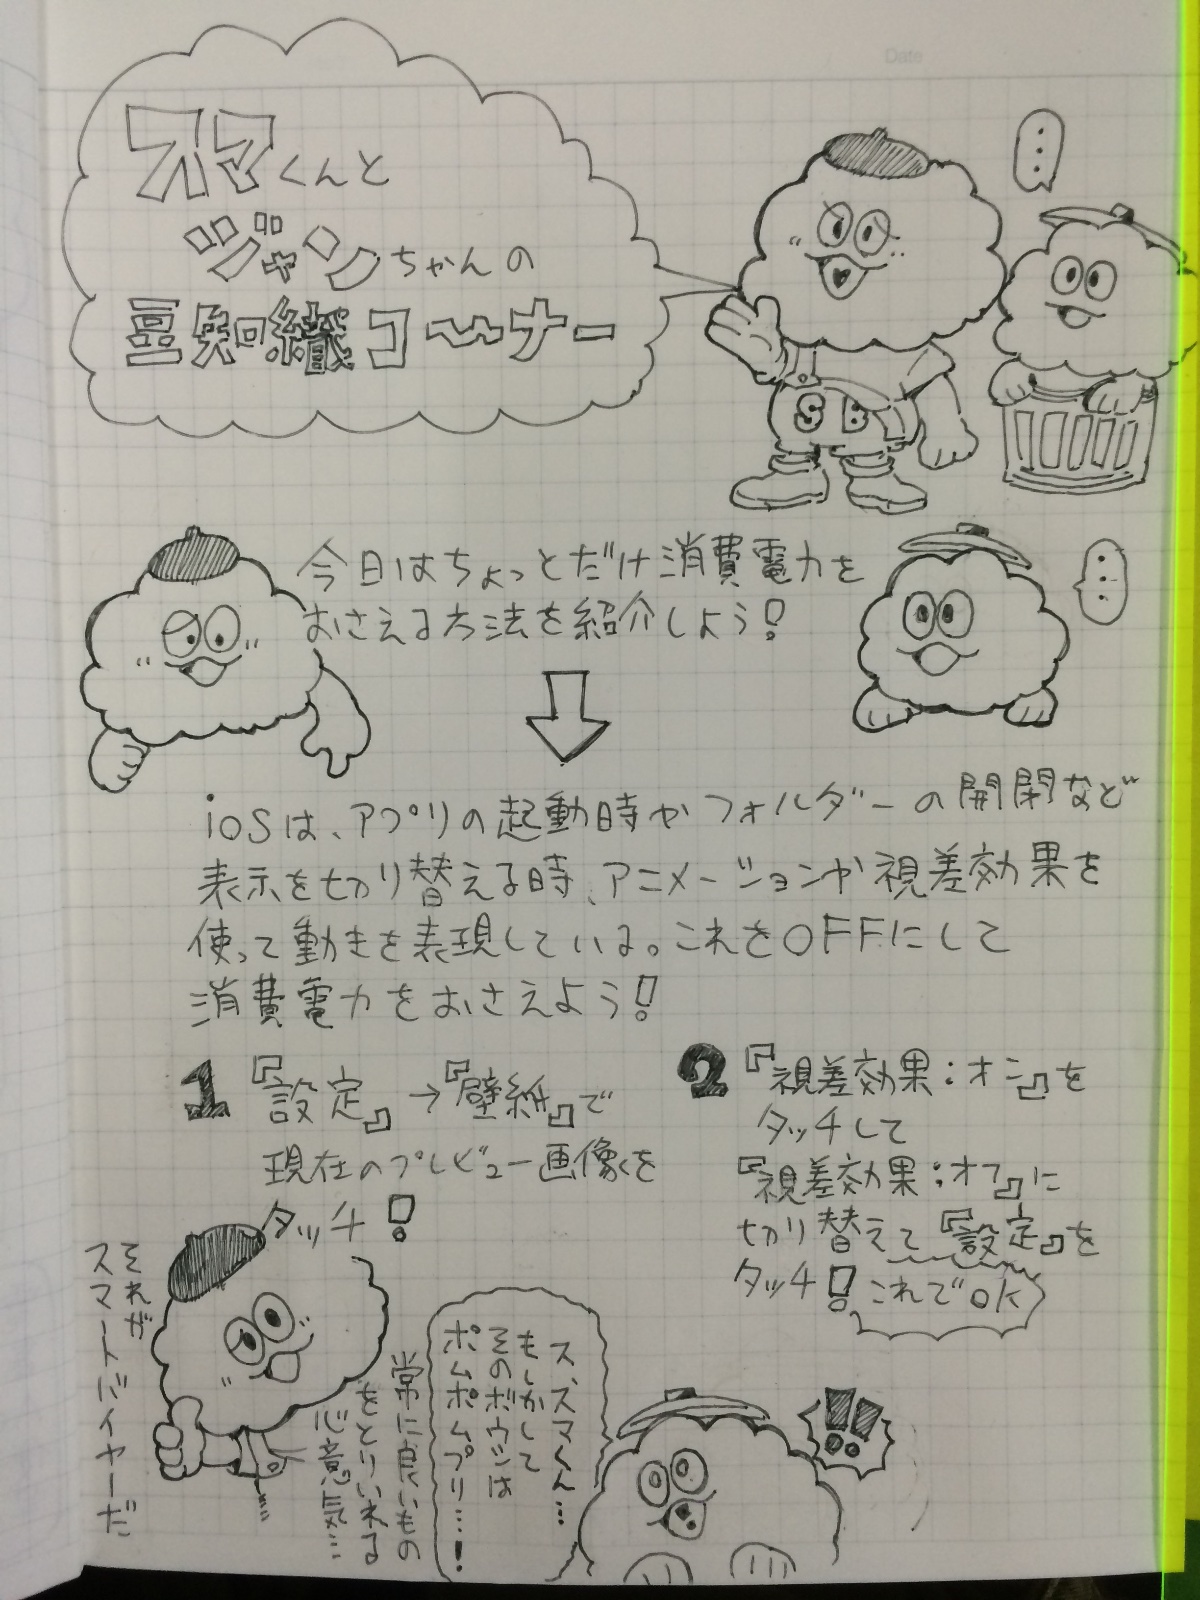 Date
スマくんと
ジャンちゃんの
豆知識コーナー
・・・
SB
今日はちょっとだけ消費電力を
おさえる方法を紹介しよう!
・・・
iosは、アプリの起動時やフォルダーの開閉など
表示を切り替える時、アニメーションや視差効果を
使って動きを表現している。これをOFFにして
消費電力をおさえよう!
1 『設定』→『壁紙』で
現在のプレビュー画像を
タッチ!
2 『視差効果:オン』を
タッチして
『視差効果:オフ』に
切り替えて『設定』を
タッチ! これでOK
ス、スマくん…
もしかして
そのボウシは
ポムポムプリ…!
!!
常に良いもの
をとりいれる
心意気…
それが
スマートバイヤーだ